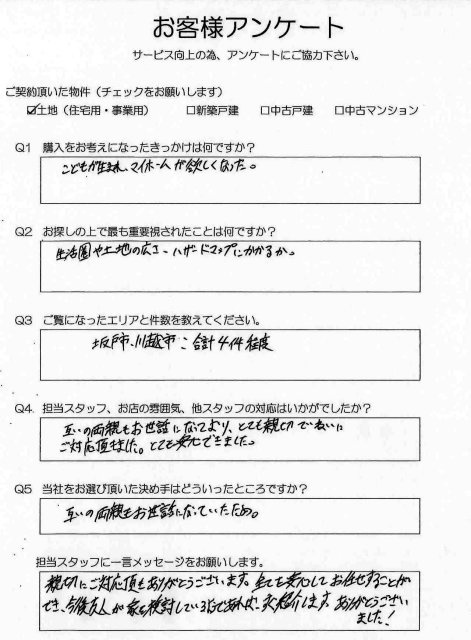 お客様アンケート
サービス向上の為、アンケートにご協力下さい。
ご契約頂いた物件（チェックをお願いします）
☑土地（住宅用・事業用） □新築戸建 □中古戸建 □中古マンション
Q1 購入をお考えになったきっかけは何ですか？
こどもが生まれ、マイホームが欲しくなった。
Q2 お探しの上で最も重要視されたことは何ですか？
生活圏や土地の広さ、ハザードマップにかかるか。
Q3 ご覧になったエリアと件数を教えてください。
坂戸市、川越市：合計4件程度
Q4 担当スタッフ、お店の雰囲気、他スタッフの対応はいかがでしたか？
互いの両親もお世話になっており、とても親切でていねいに
ご対応頂きました。とても安心できました。
Q5 当社をお選び頂いた決め手はどういったところですか？
互いの両親もお世話になっていたため。
担当スタッフに一言メッセージをお願いします。
親切にご対応頂きありがとうございます。全てを安心してお任せすることが
でき、今後友人が家を検討している話であれば、ご紹介します。ありがとうござい
ました！